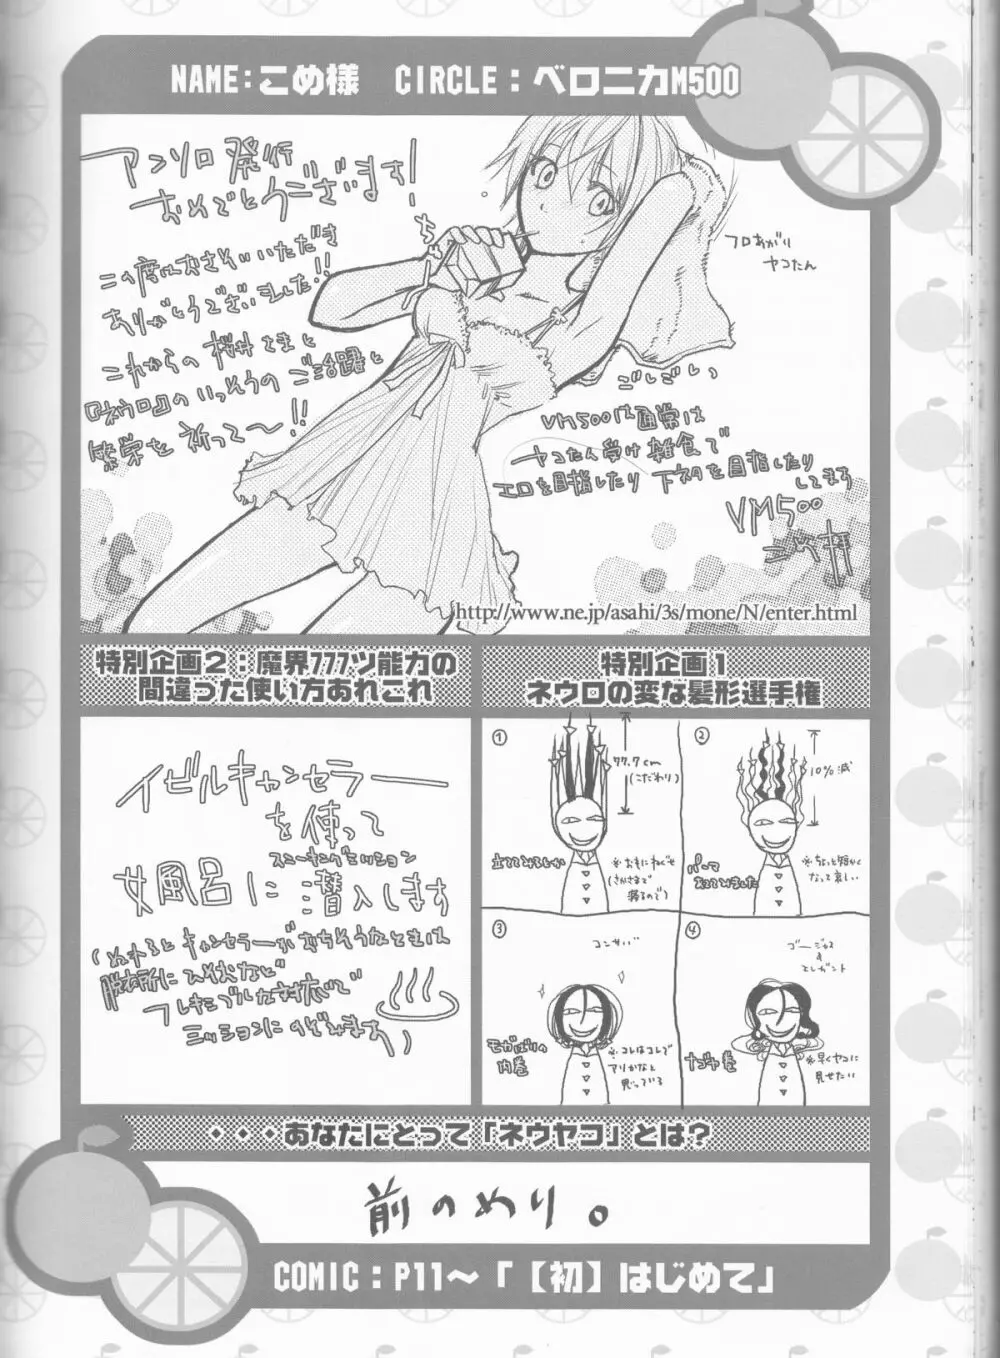 NAME:こめ様　CIRCLE：ベロニカM500
アンソロ発行
おめでとうございます!
この度はおさそいいただき
ありがとうございました!!
これからの桜井さまと
『ネウロ』のいっそうのご活躍と
繁栄を祈って〜!!
フロあがり
ヤコたん
ごしごしい
VM500は通常は
ヤコたん受け雑食で
エロを目指したり下ネタを目指したり
してます
VM500
http://www.ne.jp/asahi/3s/mone/N/enter.html
特別企画1
ネウロの変な髪形選手権
①
77.7cm
(こだわり)
立ててみるしか
※おもにねぐせ
(さかさまで
寝るので)
②
10%減
パーマ
あててみました
※ちょっと短かく
なって哀しい
③
コンサバ
モガばりの
内巻
※コレはコレで
アリかなと
思っている
④
ゴージャス
&
エレガント
ナゴヤ巻
※早くヤコに
見せたい
特別企画2：魔界777ツ能力の
間違った使い方あれこれ
イビルキャンセラー
を使って
女風呂に潜入します
スニーキングミッション
(ぬれるとキャンセラーがおちそうなときは
脱衣所にひそむなど
フレキシブルな対応で
ミッションにのぞみます)
・・・あなたにとって「ネウヤコ」とは？
前のめり。
COMIC：P11〜「【初】はじめて」